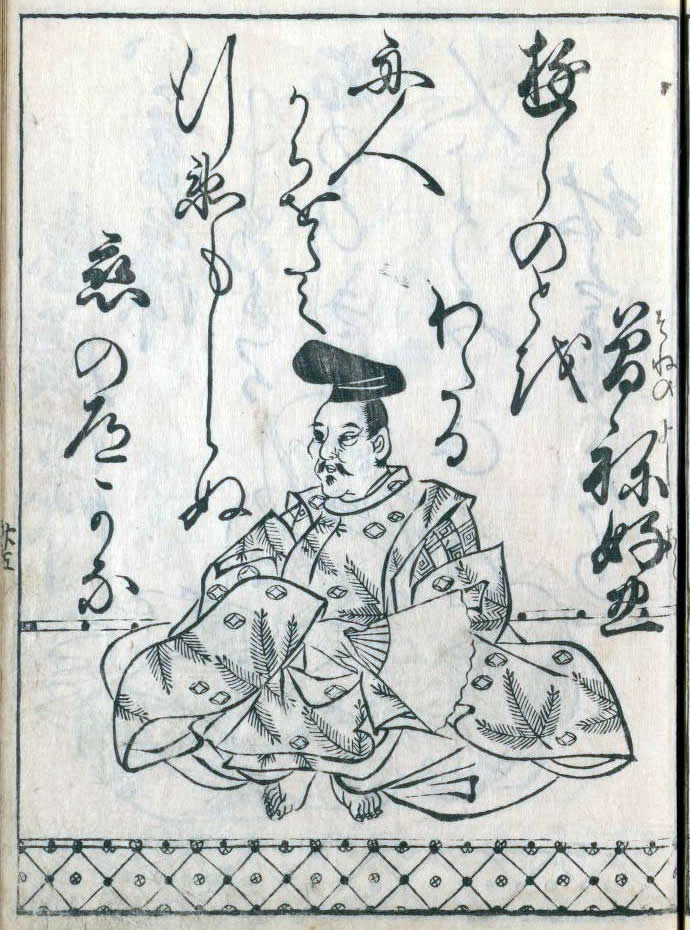 曽祢好忠
そねのよしたゞ
ゆらのとを
わたる
舟人
かちをたえ
行衛もしらぬ
恋の道かな